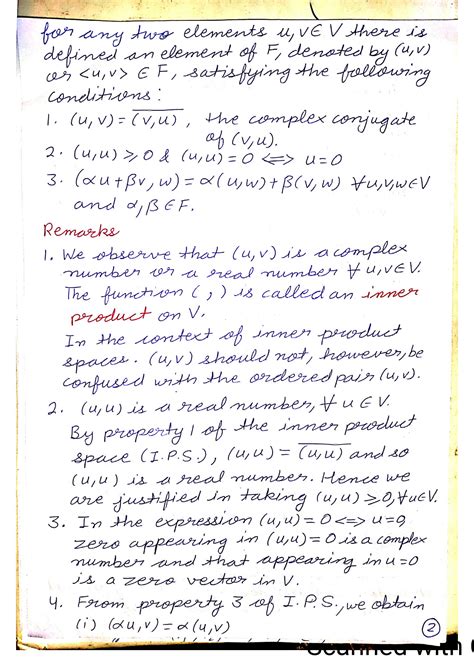 for any two elements u, v ∈ V there is
defined an element of F, denoted by (u, v)
or <u, v> ∈ F, satisfying the following
conditions :
1. (u, v) = \overline{(v, u)}, the complex conjugate
of (v, u).
2. (u, u) ⩾ 0 & (u, u) = 0 ⟺ u = 0
3. (αu + βv, w) = α(u, w) + β(v, w) ∀ u, v, w ∈ V
and α, β ∈ F.
Remarks
1. We observe that (u, v) is a complex
number or a real number ∀ u, v ∈ V.
The function ( , ) is called an inner
product on V.
In the context of inner product
spaces. (u, v) should not, however, be
confused with the ordered pair (u, v).
2. (u, u) is a real number, ∀ u ∈ V.
By property 1 of the inner product
space (I.P.S.), (u, u) = \overline{(u, u)} and so
(u, u) is a real number. Hence we
are justified in taking (u, u) ⩾ 0, ∀ u ∈ V.
3. In the expression (u, u) = 0 <=> u = 0,
zero appearing in (u, u) = 0 is a complex
number and that appearing in u = 0
is a zero vector in V.
4. From property 3 of I.P.S., we obtain
(i) (αu, v) = α(u, v)
2